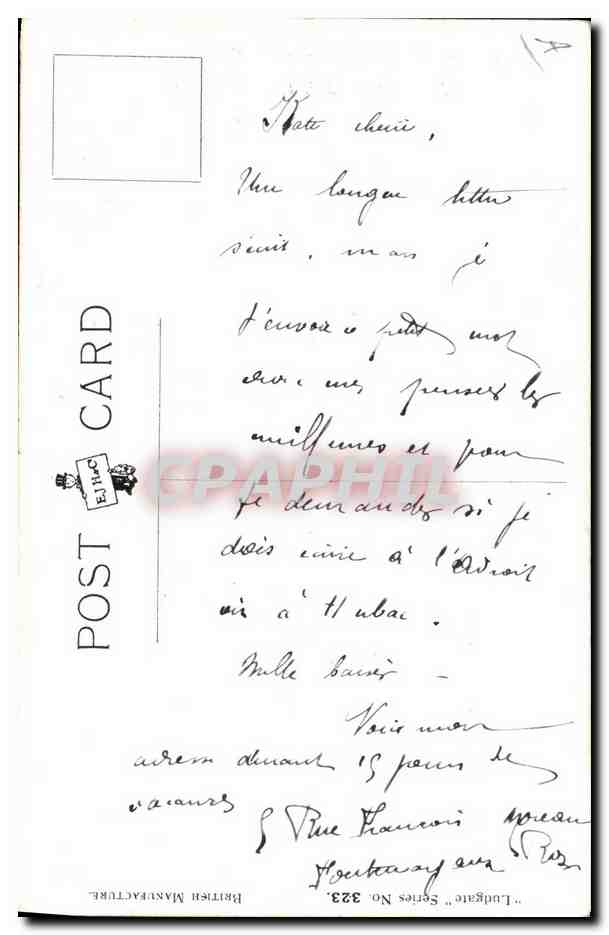 Kate cherie,
Une longue lettre
suit, mais je
t'envoie ce petit mot
avec mes pensées les
meilleures et pour
te demander si je
dois écrire à l'Adroit
ou à Hubac.
Mille baisers -
Voici mon
adresse durant 15 jours de
vacances
5 Rue François Moreau
Fontenay aux Roses
POST CARD
E.J.H.& Co
CPAPHIL
"Ludgate" Series No. 323.
BRITISH MANUFACTURE.